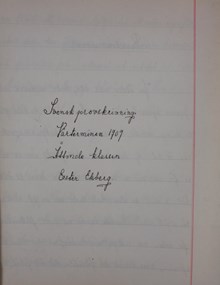 Svensk provskrivning
Vårterminen 1909
Åttonde klassen
Ester Ekberg